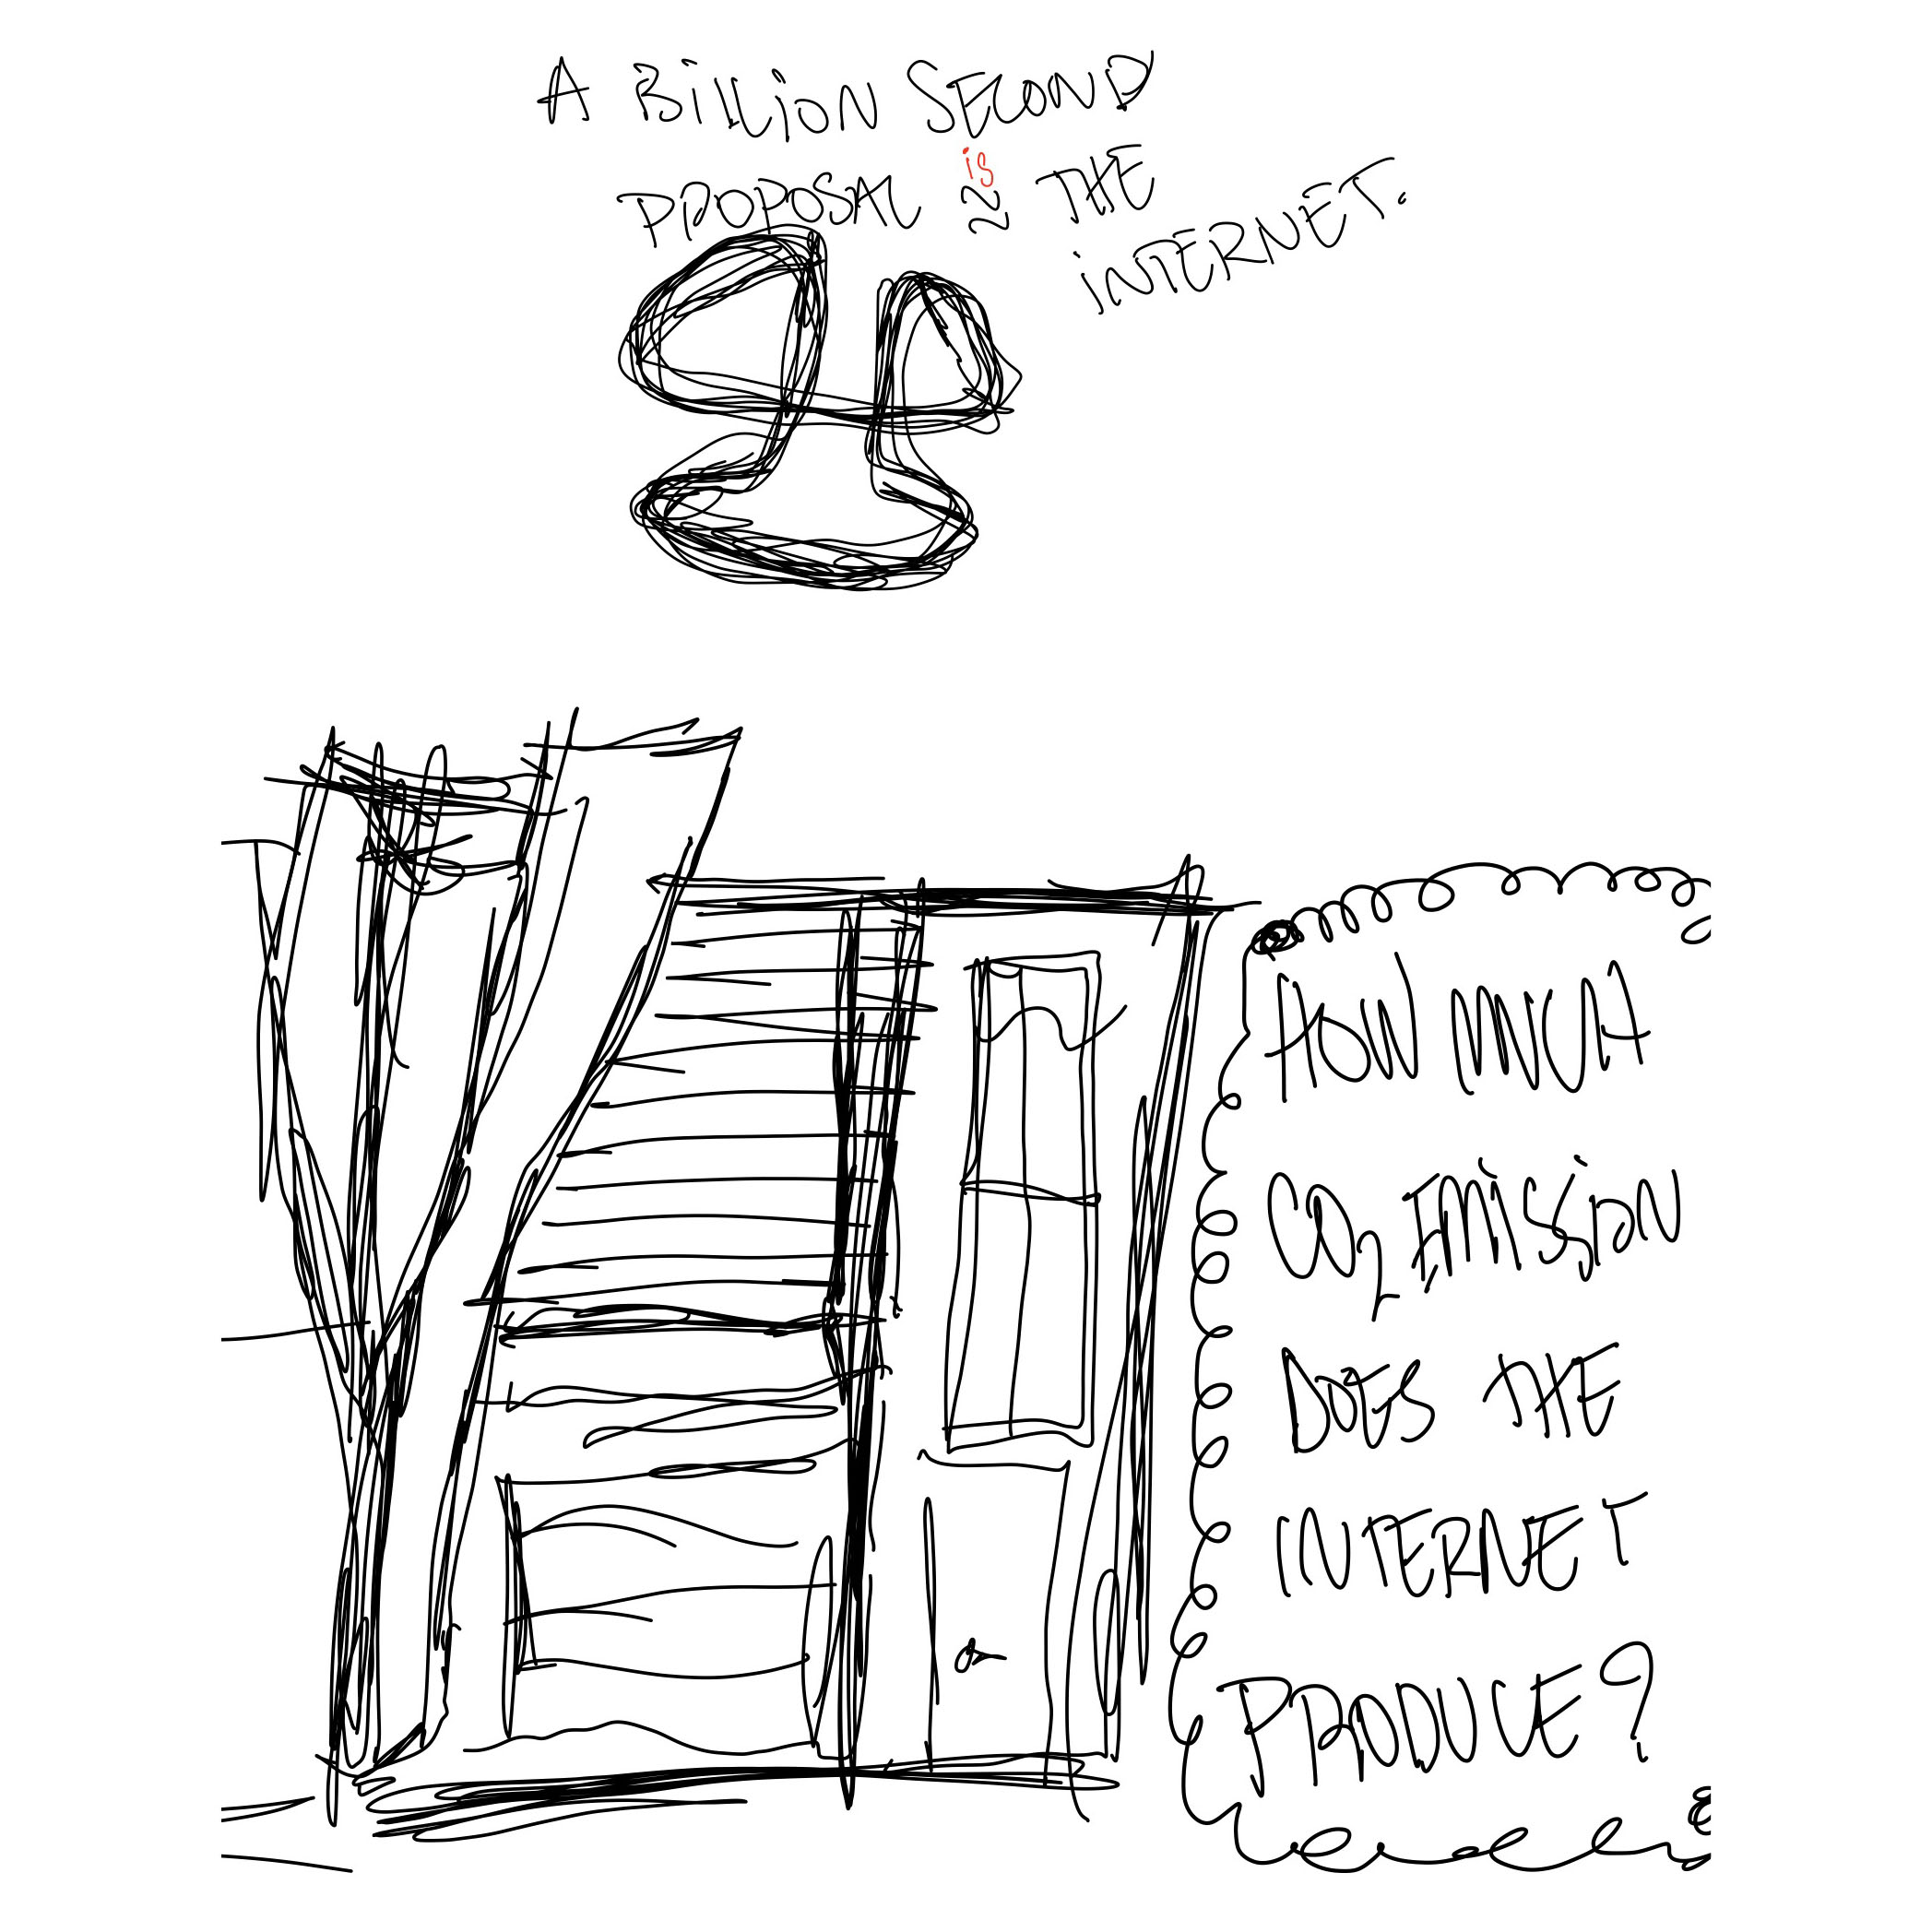 A BiLLiON SECOND
is THE
iNTERNET.
HOW MUCH
CO₂ EMiSSiON
DOES THE
INTERNET
PRODUCE?